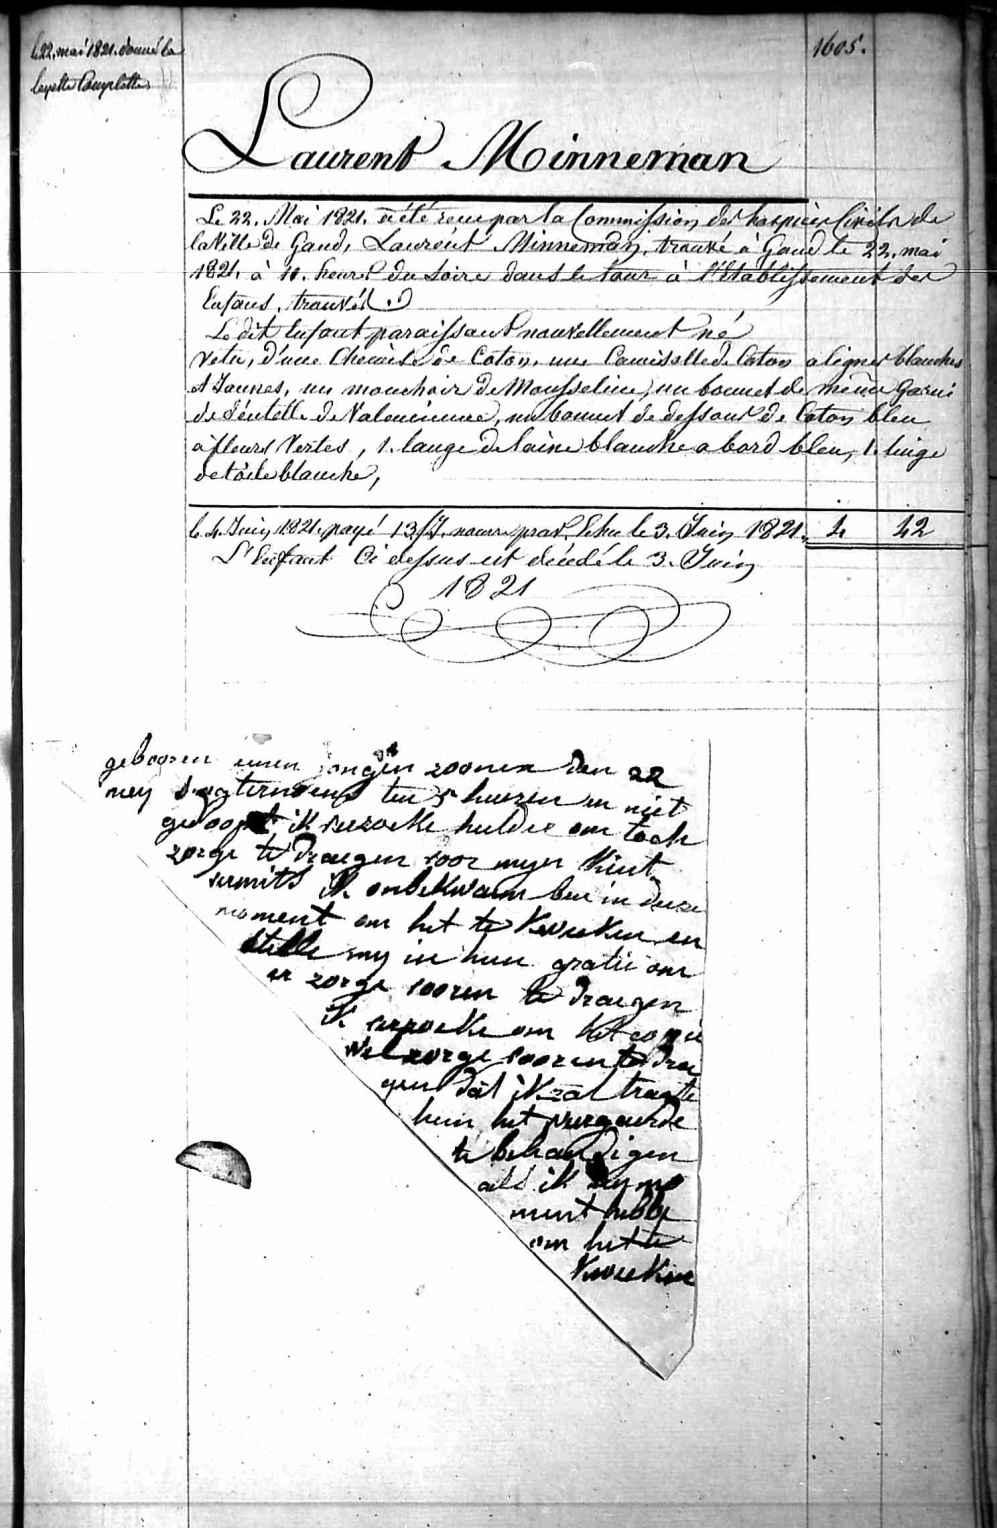 le 22. mai 1821. donné la
layette Complette
1605.
Laurent Minneman
Le 22. Mai 1821. a été recu par la Commission des hospices Civils de
la Ville de Gand, Laurent Minneman, trouvé à Gand le 22. mai
1821. à 11. heures du Soire dans le tour à l'établissement des
Enfans, trouvés.
Le dit Enfant paraissant nouvellement né
Vetu, d'une Chemise de Coton, une Camisolle de Coton a lignes blanches
et Jaunes, un mouchoir de Mousseline, un bonnet de même Garni
de Déntelle de Valencienne, un bonnet de dessous de Coton bleu
a fleurs Vertes, 1. lange de laine blanche a bord bleu, 1. linge
de toile blanche,
le 4. Juin 1821. payé 13 J. nourr. echu le 3. Juin 1821. 4 42
L'Enfant Ci dessus est décédé le 3. Juin
1821
gebooren eenen jongen zoonen den 22
mey s'agternoens ten 5 hueren en niet
gedoopt ik versoeke hulder om toch
zorge te draegen voor myn kint
vermits ik onbekwaem ben in deese
moment om het te kweeken en
stelle my in hun gratie om
er zorge vooren te draegen
ik versoeke om het
wel zorge vooren te drae
gen dat ik zal tragte
hun het
te behandigen
als ik den mo
ment hebbe
om het te
kweeken